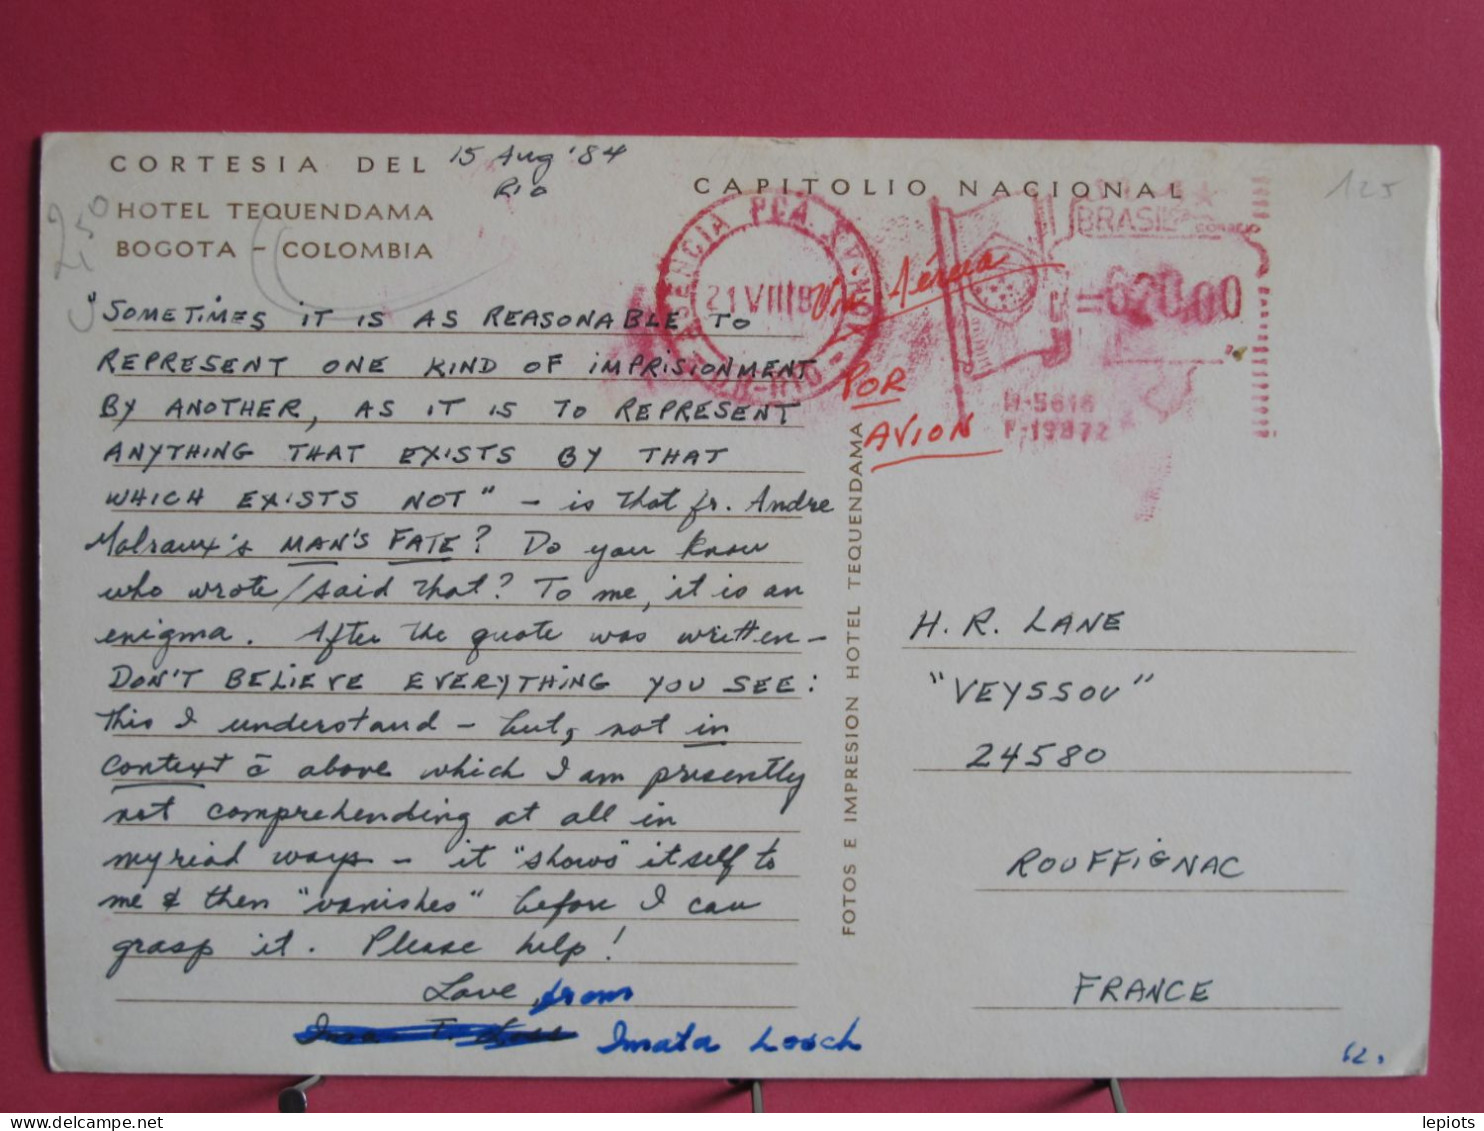 CORTESIA DEL
HOTEL TEQUENDAMA
BOGOTA - COLOMBIA
15 Aug '84
RIO
CAPITOLIO NACIONAL
125
2,50
"SOMETIMES IT IS AS REASONABLE TO
REPRESENT ONE KIND OF IMPRISIONMENT
BY ANOTHER, AS IT IS TO REPRESENT
ANYTHING THAT EXISTS BY THAT
WHICH EXISTS NOT" - is that fr. Andre
Malraux's MAN'S FATE? Do you know
who wrote/said that? To me, it is an
enigma. After the quote was written -
DON'T BELIEVE EVERYTHING YOU SEE:
this I understand - but, not in
context c̄ above which I am presently
not comprehending at all in
myriad ways - it "shows" itself to
me & then "vanishes" before I can
grasp it. Please help!
Love, from
Imata Losch
PCA. XV-NOV.
21 VIII 8
BRASIL
CORREIO
=620,00
H-5616
F-19872
Via Aérea
POR
AVION
FOTOS E IMPRESION HOTEL TEQUENDAMA
H. R. LANE
"VEYSSOU"
24580
ROUFFIGNAC
FRANCE
62,
delcampe.net
lepiots